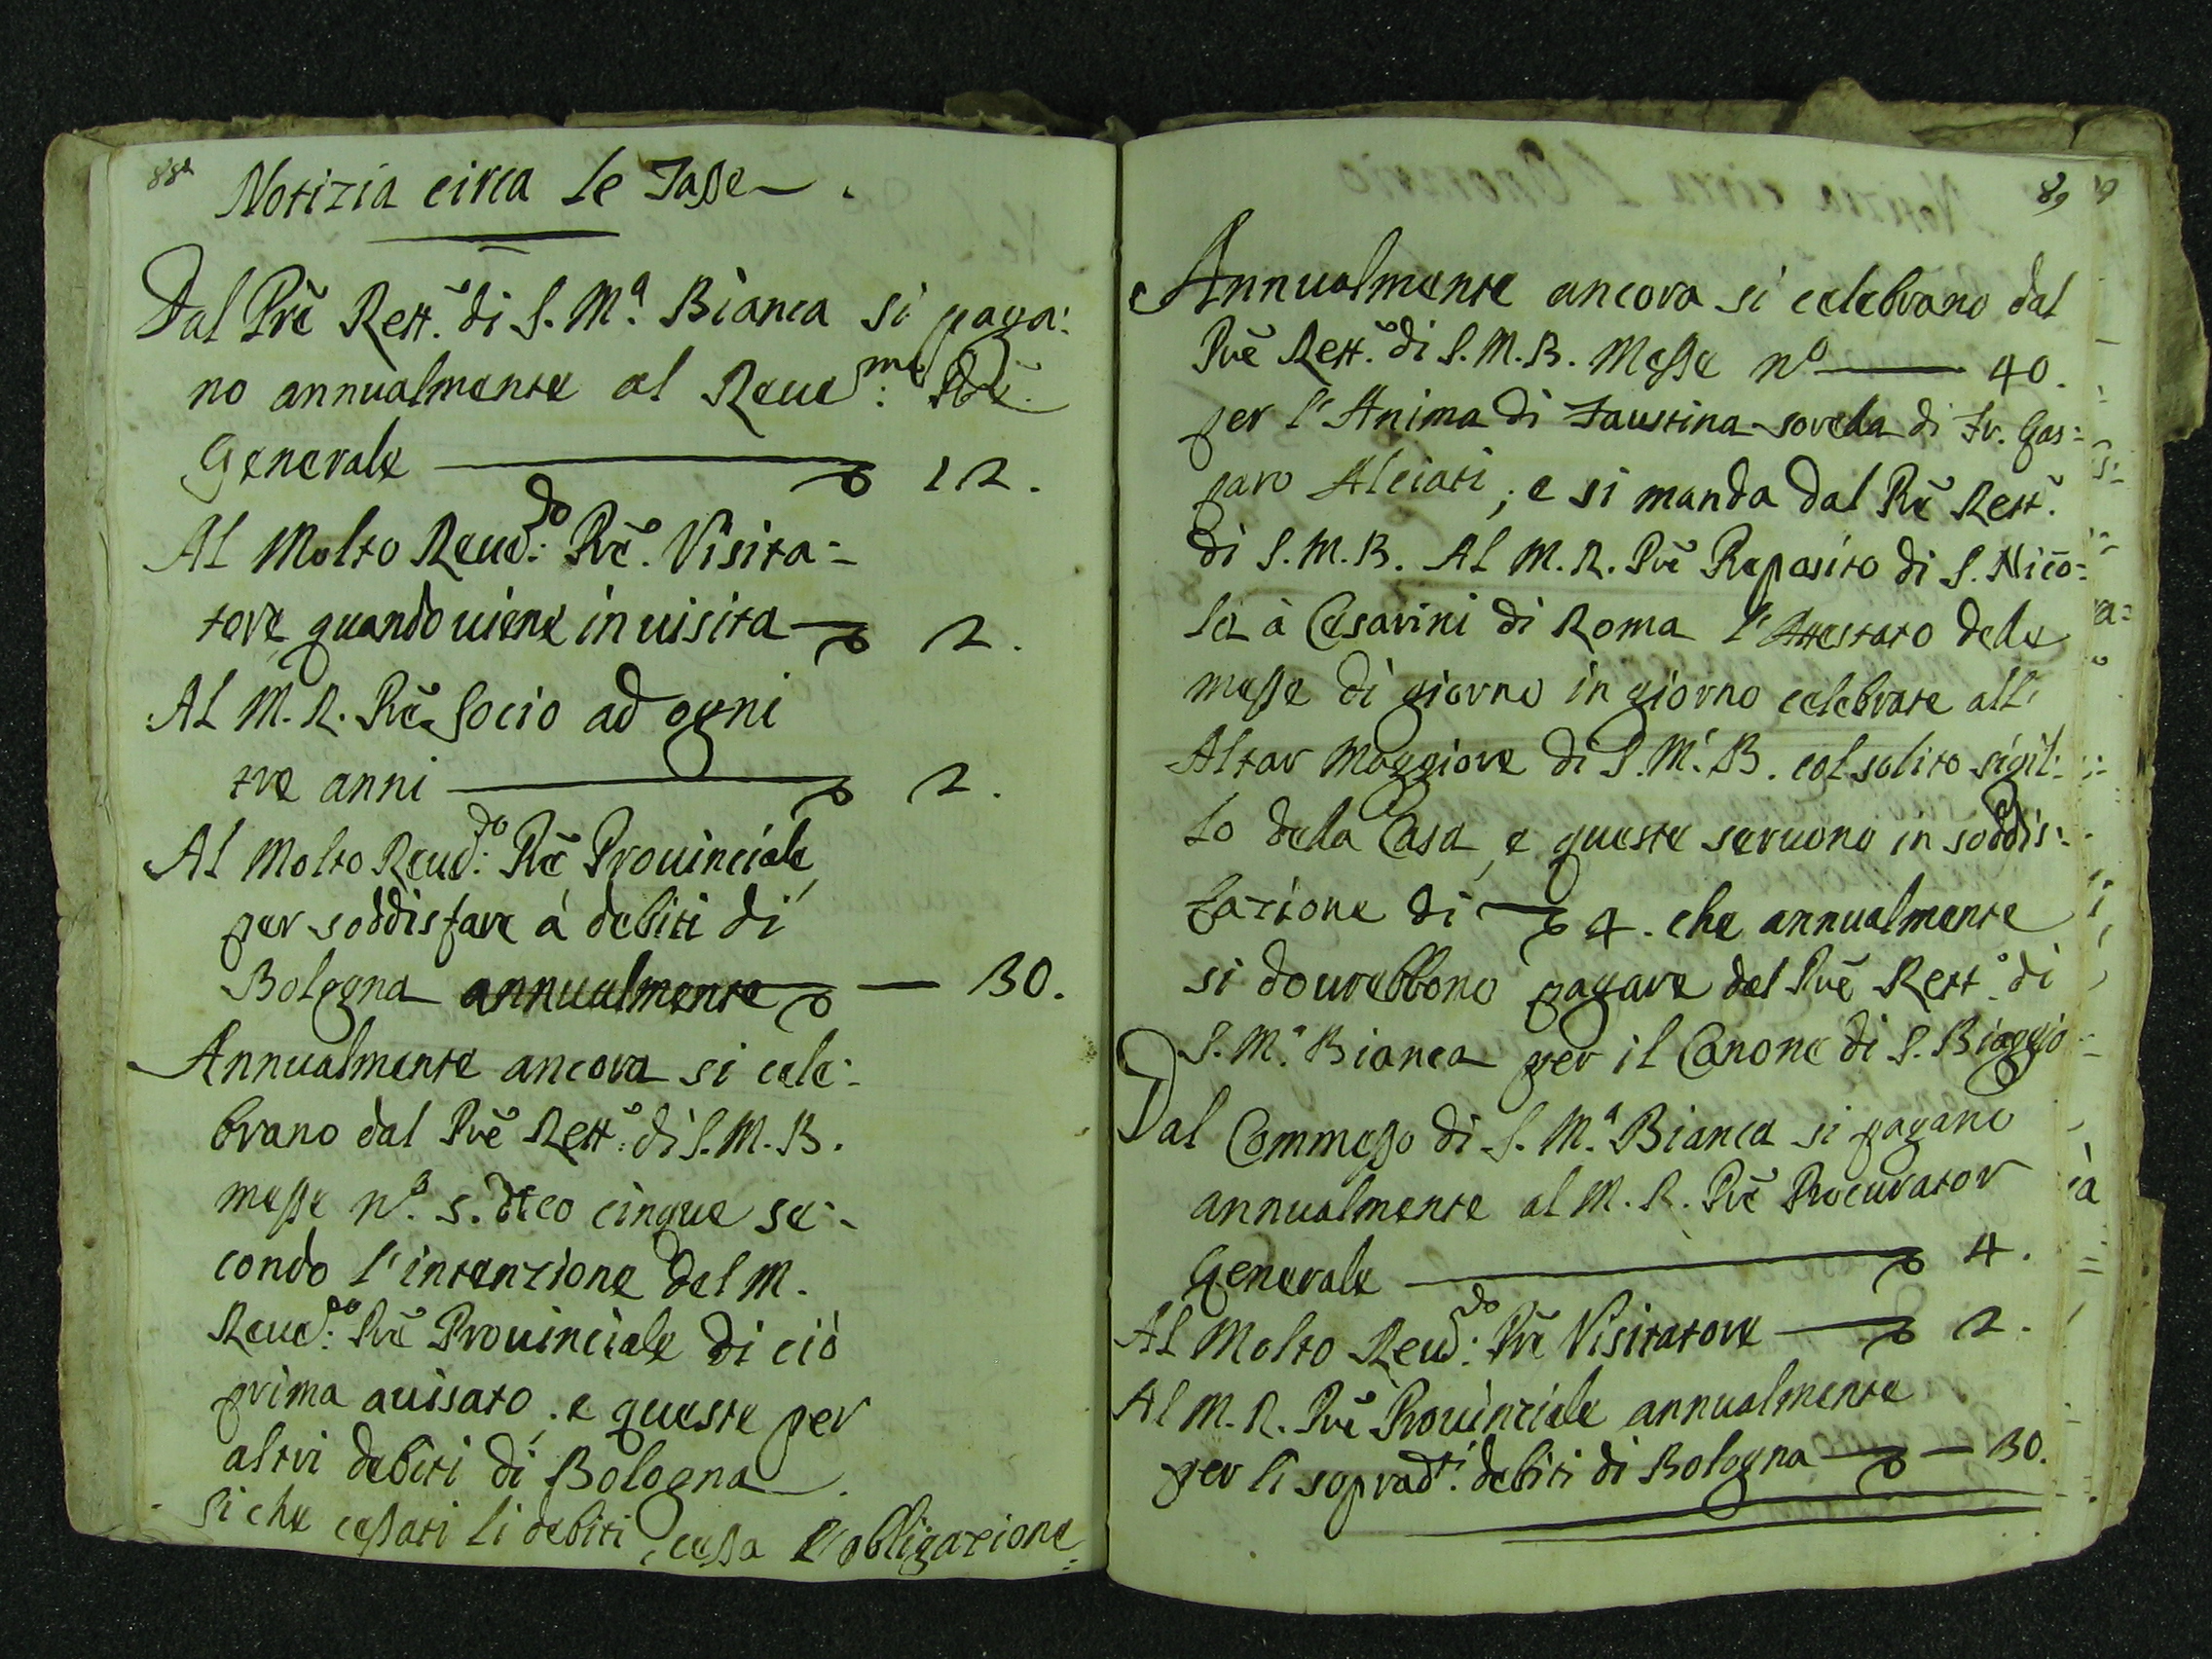 88
Notizia circa le Tasse
Dal Prē Rett.e di S. M.a Bianca si paga:
no annualmente al Reue.me: Prē.
Generale 12.
Al Molto Reud.do: Prē. Visita=
tore, quando uiene in uisita 2.
Al M. R. Prē Socio ad ogni
tre anni 2.
Al Molto Reud.do: Prē Prouinciale
per soddisfare à debiti di
Bologna annualmente — 30.
Annualmente ancora si cele:
brano dal Prē Rett.e di S. M. B.
messe n.o 5. cinque se:
condo l'intenzione del M.
Reud.do: Prē Prouinciale di ciò
prima auisato, e queste per
altri debiti di Bologna.
si che cessati li debiti, cessa l'obligazione.
89
Annualmente ancora si celebrano dal
Prē Rett.e di S. M. B. Messe n.o 40.
per l'Anima di Faustina sorella di Fr. Gas:
paro Alciati; e si manda dal Prē Rett.e
di S. M. B. Al M. R. Prē Preposito di S. Nico:
la à Cesarini di Roma l'Attestato delle
messe di giorno in giorno celebrate all'
Altar Maggiore di S. M. B. col solito sigil:
lo della Casa, e queste seruono in soddis:
fazione di 4. che annualmente
si dourebbono pagare dal Prē Rett.e di
S. M.a Bianca per il Canone di S. Biaggio
Dal Commesso di S. M.a Bianca si pagano
annualmente al M. R. Prē Procurator
Generale 4.
Al Molto Reud.do: Prē Visitatore 2.
Al M. R. Prē Prouinciale annualmente
per li soprad.ti debiti di Bologna — 30.